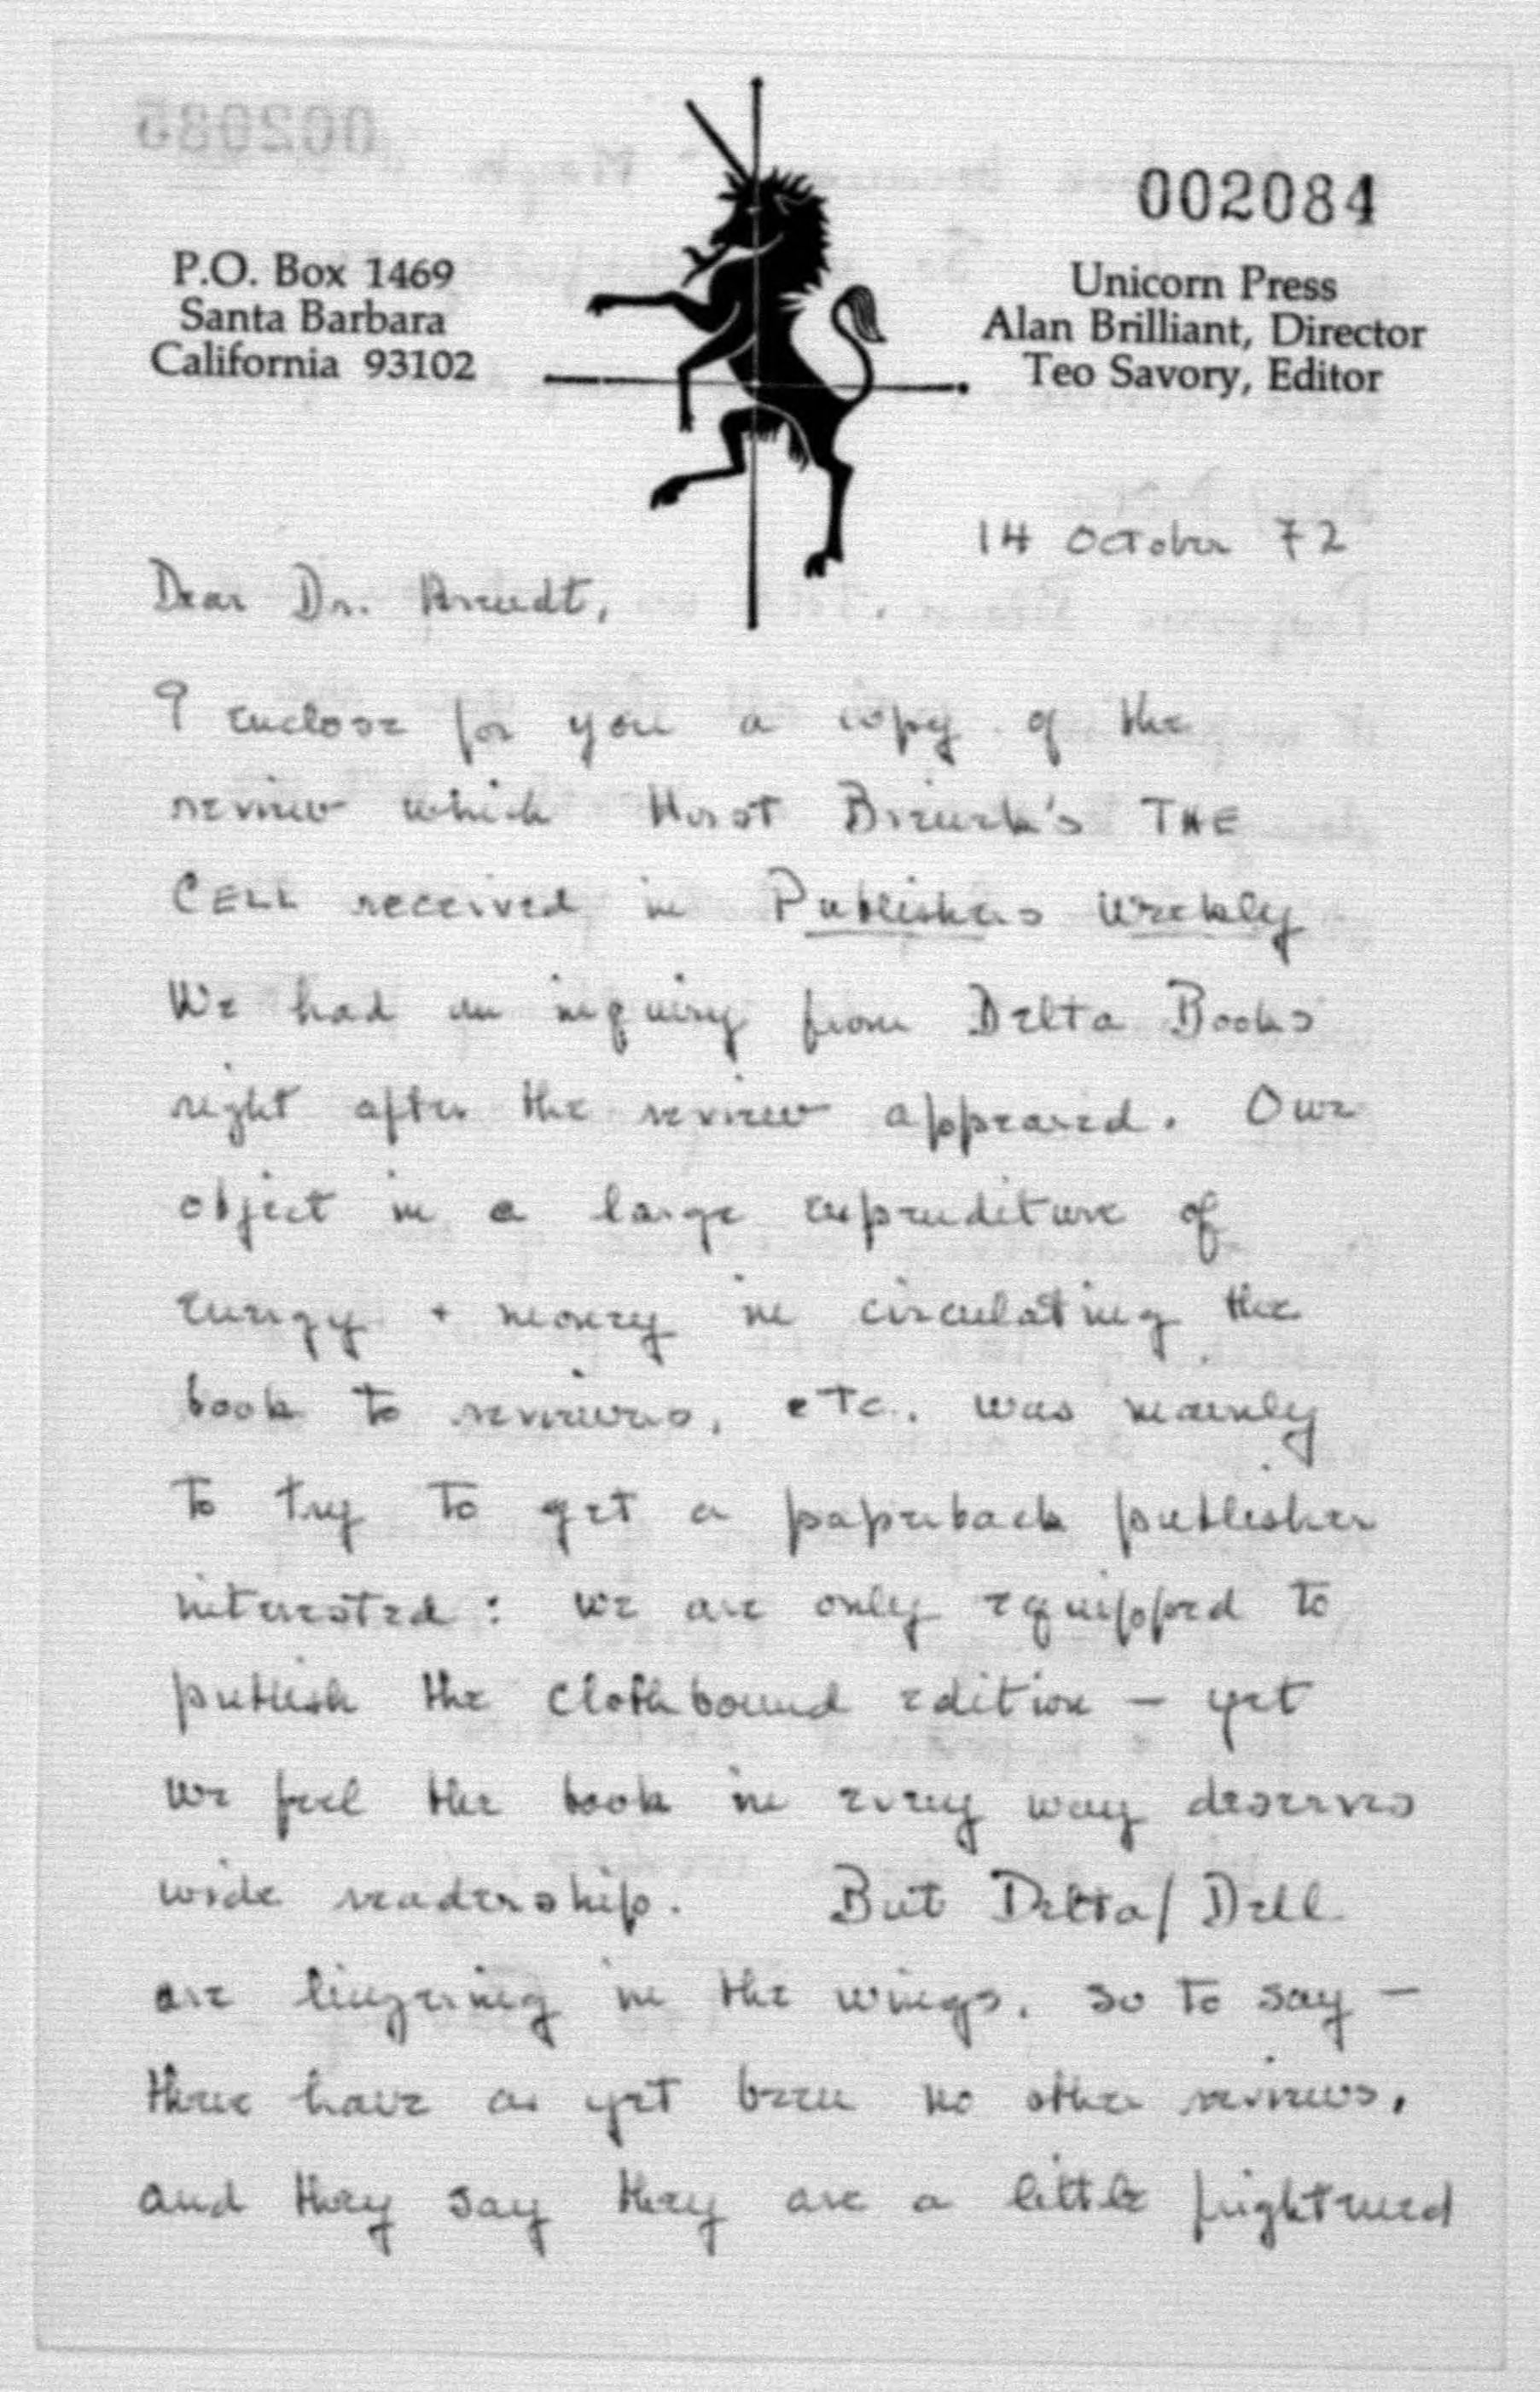 002084
P.O. Box 1469
Santa Barbara
California 93102
Unicorn Press
Alan Brilliant, Director
Teo Savory, Editor
14 October 72
Dear Dr. Arendt,
I enclose for you a copy of the
review which Horst Bienek's THE
CELL received in Publishers Weekly
We had an inquiry from Delta Books
right after the review appeared. Our
object in a large expenditure of
energy + money in circulating the
book to reviewers, etc., was mainly
to try to get a paperback publisher
interested: we are only equipped to
publish the clothbound edition — yet
we feel the book in every way deserves
wide readership. But Delta/Dell
are lingering in the wings, so to say —
there have as yet been no other reviews,
and they say they are a little frightened